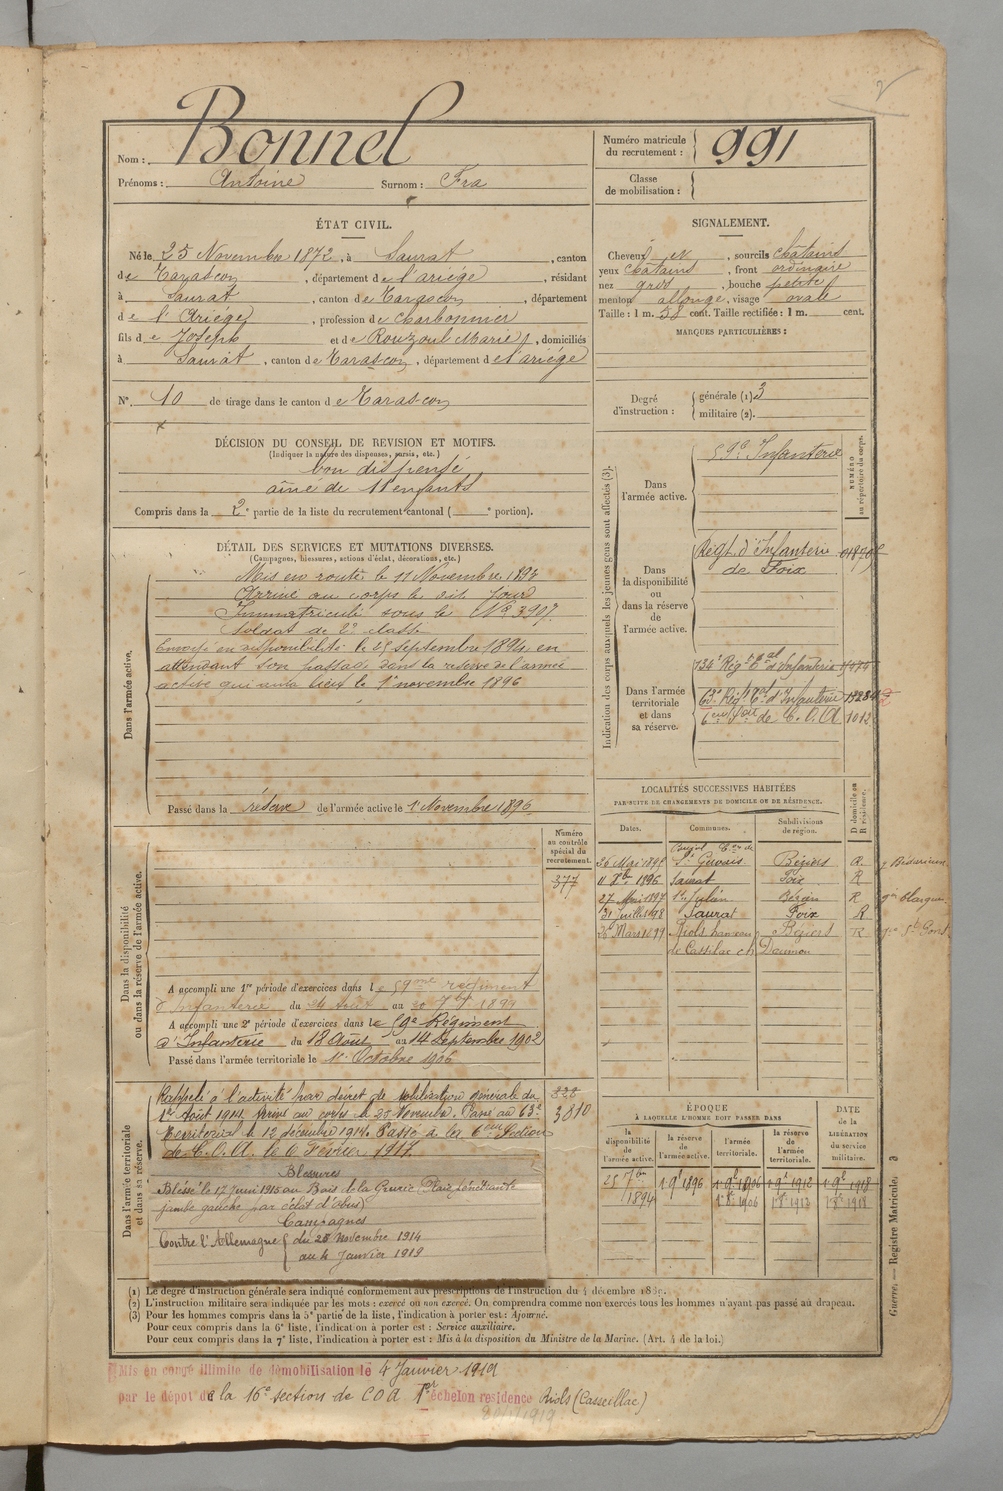 Bonnel
Nom :
Prénoms : Antoine Surnom : Fra
Numéro matricule du recrutement : 991
Classe de mobilisation :
ÉTAT CIVIL.
Né le 25 Novembre 1872, à Saurat, canton
de Tarascon, département de l'ariége, résidant
à Saurat, canton de Tarascon, département
de l'Ariége, profession de charbonnier
fils de Joseph et de Rouzoul Marie, domiciliés
à Saurat, canton de Tarascon, département de l'ariége
N° 10 de tirage dans le canton de Tarascon
SIGNALEMENT.
Cheveux et, sourcils châtains
yeux châtains, front ordinaire
nez gros, bouche petite
menton allongé, visage ovale
Taille : 1 m. 58 cent. Taille rectifiée : 1 m. cent.
MARQUES PARTICULIÈRES :
Degré d'instruction : générale (1) 3
militaire (2).
DÉCISION DU CONSEIL DE REVISION ET MOTIFS.
(Indiquer la nature des dispenses, sursis, etc.)
bon dispensé
aîné de 11 enfants
Compris dans la 2e partie de la liste du recrutement cantonal ( e portion).
DÉTAIL DES SERVICES ET MUTATIONS DIVERSES.
(Campagnes, blessures, actions d'éclat, décorations, etc.)
Dans l'armée active.
Mis en route le 11 Novembre 1893
Arrivé au corps le dit jour
Immatriculé sous le N° 3907
Soldat de 2e classe
Envoyé en disponibilité le 25 septembre 1894, en
attendant son passage dans la réserve de l'armée
active qui aura lieu le 1er novembre 1896
Passé dans la réserve de l'armée active le 1er Novembre 1896
Numéro au contrôle spécial du recrutement.
377
Dans la disponibilité ou dans la réserve de l'armée active.
A accompli une 1re période d'exercices dans le 59me régiment
d'Infanterie du 24 Aout au 20 7bre 1899
A accompli une 2e période d'exercices dans le 59e Régiment
d'Infanterie du 18 Août au 14 Septembre 1902
Passé dans l'armée territoriale le 1er Octobre 1906
Dans l'armée territoriale et dans sa réserve.
Rappelé à l'activité par décret de mobilisation générale du
1er Août 1914. Arrivé au corps le 25 Novembre. Passé au 63e
Territorial le 12 décembre 1914. Passé à la 6eme Section
de C.O.A. le 6 Février 1917.
3810
Blessures
Blessé le 17 juin 1915 au Bois de la Grurie (Plaie pénétrante
jambe gauche par éclat d'obus)
Campagnes
Contre l'Allemagne du 25 Novembre 1914
au 4 Janvier 1919
Indication des corps auxquels les jeunes gens sont affectés (3).
NUMÉRO au répertoire du corps.
Dans l'armée active.
59e Infanterie
Dans la disponibilité ou dans la réserve de l'armée active.
Régt. d'Infanterie
de Foix
Dans l'armée territoriale et dans sa réserve.
134e Régt Tal d'Infanterie
63e Régt Tal d'Infanterie
6eme Son de C.O.A 1012
LOCALITÉS SUCCESSIVES HABITÉES
PAR SUITE DE CHANGEMENTS DE DOMICILE OU DE RÉSIDENCE.
Dates. Communes. Subdivisions de région. D domicile ou R résidence.
St Gervais Béziers R
11 Xbre 1896 Saurat Foix R
27 Mai 1897 St Julien Béziers R
31 Juillet 98 Saurat Foix R
26 Mars 1899 Riols hameau Béziers R
ÉPOQUE
À LAQUELLE L'HOMME DOIT PASSER DANS
la disponibilité de l'armée active.
la réserve de l'armée active.
l'armée territoriale.
la réserve de l'armée territoriale.
DATE de la LIBÉRATION du service militaire.
25 7bre 1894
1 9bre 1896
1 9bre 1906
1 9bre 1912
1 9bre 1918
1 8bre 1906
1 8bre 1912
1 8bre 1918
Guerre. — Registre Matricule. 3
(1) Le degré d'instruction générale sera indiqué conformément aux prescriptions de l'instruction du 4 décembre 1889.
(2) L'instruction militaire sera indiquée par les mots : exercé ou non exercé. On comprendra comme non exercés tous les hommes n'ayant pas passé au drapeau.
(3) Pour les hommes compris dans la 5e partie de la liste, l'indication à porter est : Ajourné.
Pour ceux compris dans la 6e liste, l'indication à porter est : Service auxiliaire.
Pour ceux compris dans la 7e liste, l'indication à porter est : Mis à la disposition du Ministre de la Marine. (Art. 4 de la loi.)
Mis en congé illimité de démobilisation le 4 Janvier 1919
par le dépôt de la 16e section de COA 1er échelon résidence Riols (Casseillac)